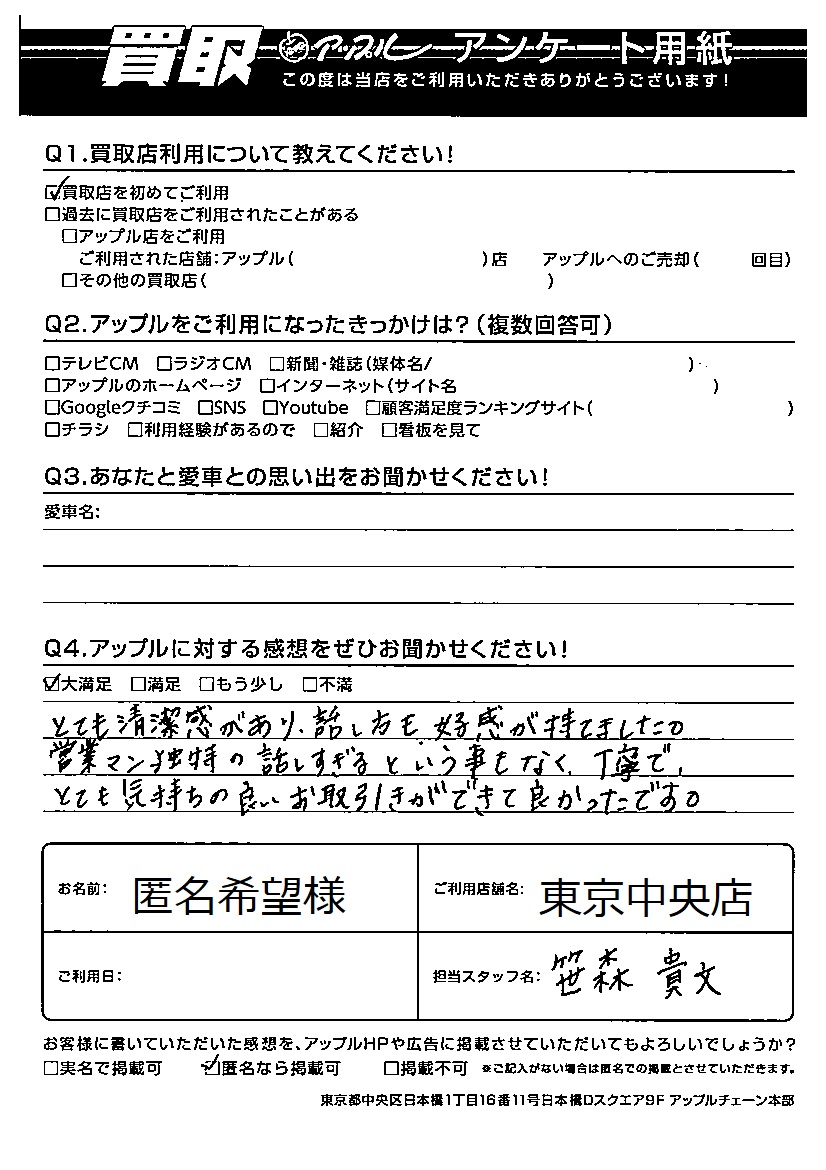 買取 アップル アンケート用紙
この度は当店をご利用いただきありがとうございます!
Q1.買取店利用について教えてください!
☑買取店を初めてご利用
□過去に買取店をご利用されたことがある
□アップル店をご利用
ご利用された店舗:アップル( )店 アップルへのご売却( 回目)
□その他の買取店( )
Q2.アップルをご利用になったきっかけは?(複数回答可)
□テレビCM □ラジオCM □新聞・雑誌(媒体名/ )
□アップルのホームページ □インターネット(サイト名 )
□Googleクチコミ □SNS □Youtube □顧客満足度ランキングサイト( )
□チラシ □利用経験があるので □紹介 □看板を見て
Q3.あなたと愛車との思い出をお聞かせください!
愛車名:
Q4.アップルに対する感想をぜひお聞かせください!
☑大満足 □満足 □もう少し □不満
とても清潔感があり、話し方も好感が持てました。
営業マン独特の話しすぎるという事もなく、丁寧で、
とても気持ちの良いお取引きができて良かったです。
お名前: 匿名希望様 ご利用店舗名: 東京中央店
ご利用日: 担当スタッフ名: 笹森 貴文
お客様に書いていただいた感想を、アップルHPや広告に掲載させていただいてもよろしいでしょうか?
□実名で掲載可 ☑匿名なら掲載可 □掲載不可 ※ご記入がない場合は匿名での掲載とさせていただきます。
東京都中央区日本橋1丁目16番11号日本橋Dスクエア9F アップルチェーン本部